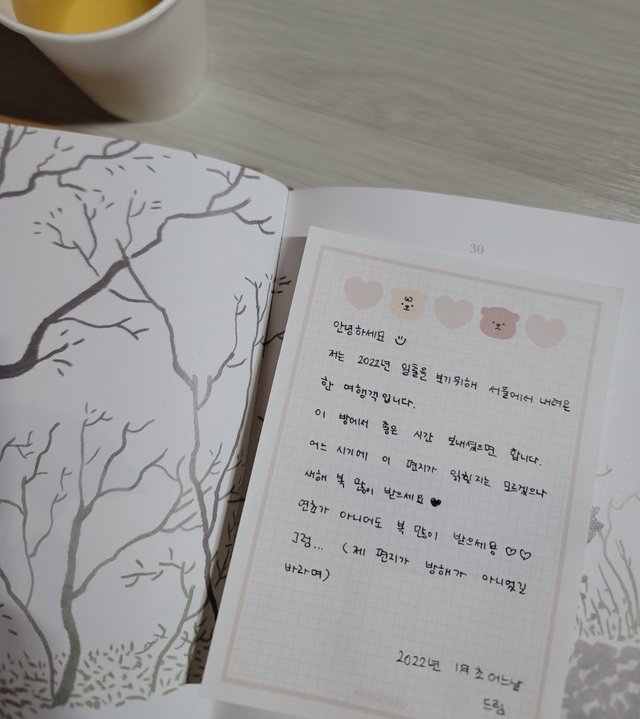 30
안녕하세요
저는 2022년 일출을 보기위해 서울에서 내려온
한 여행객 입니다.
이 방에서 좋은 시간 보내셨으면 합니다.
어느 시기에 이 편지가 읽힐지는 모르겠으나
새해 복 많이 받으세요 ♥
연초가 아니어도 복 많이 받으세용 ♡♡
그럼... (제 편지가 방해가 아니었길
바라며)
2022년 1月 초 어느날
드림